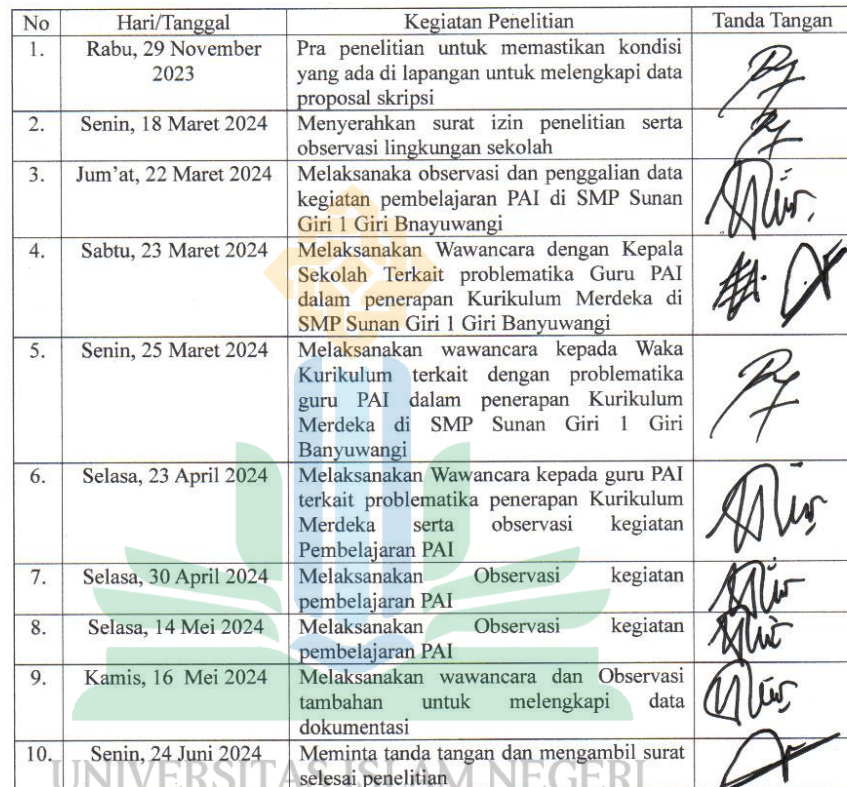 No Hari/Tanggal Kegiatan Penelitian Tanda Tangan
1. Rabu, 29 November Pra penelitian untuk memastikan kondisi
2023 yang ada di lapangan untuk melengkapi data
proposal skripsi
2. Senin, 18 Maret 2024 Menyerahkan surat izin penelitian serta
observasi lingkungan sekolah
3. Jum'at, 22 Maret 2024 Melaksanaka observasi dan penggalian data
kegiatan pembelajaran PAI di SMP Sunan
Giri 1 Giri Bnayuwangi
4. Sabtu, 23 Maret 2024 Melaksanakan Wawancara dengan Kepala
Sekolah Terkait problematika Guru PAI
dalam penerapan Kurikulum Merdeka di
SMP Sunan Giri 1 Giri Banyuwangi
5. Senin, 25 Maret 2024 Melaksanakan wawancara kepada Waka
Kurikulum terkait dengan problematika
guru PAI dalam penerapan Kurikulum
Merdeka di SMP Sunan Giri 1 Giri
Banyuwangi
6. Selasa, 23 April 2024 Melaksanakan Wawancara kepada guru PAI
terkait problematika penerapan Kurikulum
Merdeka serta observasi kegiatan
Pembelajaran PAI
7. Selasa, 30 April 2024 Melaksanakan Observasi kegiatan
pembelajaran PAI
8. Selasa, 14 Mei 2024 Melaksanakan Observasi kegiatan
pembelajaran PAI
9. Kamis, 16 Mei 2024 Melaksanakan wawancara dan Observasi
tambahan untuk melengkapi data
dokumentasi
10. Senin, 24 Juni 2024 Meminta tanda tangan dan mengambil surat
selesai penelitian
UNIVERSITAS ISLAM NEGERI